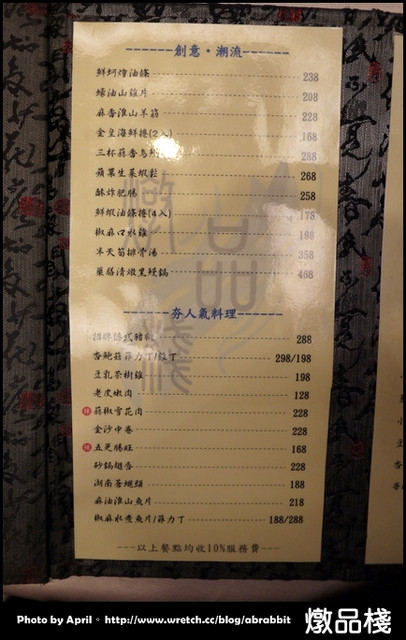 創意·潮流
鮮蚵燴油條 238
蠔油山雞片 208
麻香淮山羊筋 228
金皇海鮮捲(2入) 168
三杯菇香 288
蘋果生菜蝦鬆 268
酥炸肥腸 258
鮮蝦油條捲(4入) 178
椒麻口水雞 198
半天筍排骨湯 358
藥膳清燉黑鰻鍋 468
夯人氣料理
288
杏鮑菇菲力丁/雞丁 298/198
豆乳茶樹雞 198
老皮嫩肉 128
蒜椒雪花肉 228
金沙中卷 228
五更腸旺 168
砂鍋翅香 228
湖南蒼蠅頭 188
麻油淮山魚片 218
椒麻水煮魚片/菲力丁 188/288
以上餐點均收10%服務費
燉品棧
Photo by April。http://www.wretch.cc/blog/abrabbit 燉品棧